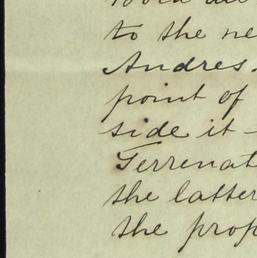 to the ne
Andres.
point of
side it -
Terrenat
the latter
the prop